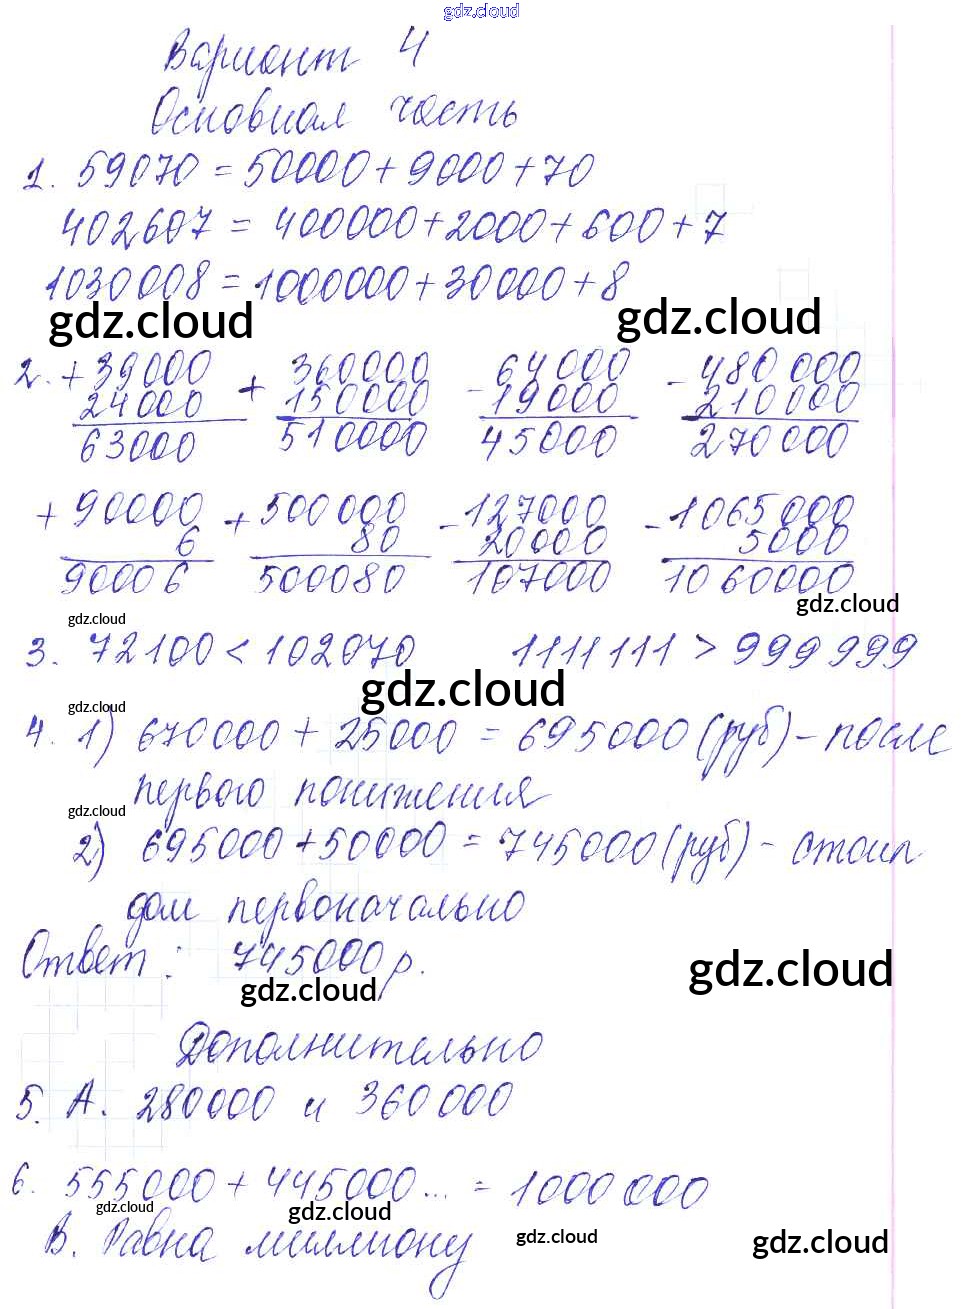 gdz.cloud
Вариант 4
Основная часть
1. 59070 = 50000 + 9000 + 70
402607 = 400000 + 2000 + 600 + 7
1030008 = 1000000 + 30000 + 8
gdz.cloud gdz.cloud
2. + 39000 + 360000 - 64000 - 480 000
24000 150000 19000 210000
63000 510000 45000 270000
+ 90000 + 500 000 - 127000 - 1065 000
6 80 20000 5000
90006 500080 107000 1060000
gdz.cloud gdz.cloud
3. 72100 < 102070 1111 111 > 999 999
gdz.cloud gdz.cloud
4. 1) 670000 + 25000 = 695000 (руб) - после
первого понижения
gdz.cloud
2) 695000 + 50000 = 745000 (руб) - стоил
дом первоначально
Ответ: 745000 р.
gdz.cloud gdz.cloud
Дополнительно
5. А. 280000 и 360 000
6. 555000 + 445000... = 1000 000
gdz.cloud gdz.cloud
В. Равна миллиону
gdz.cloud gdz.cloud